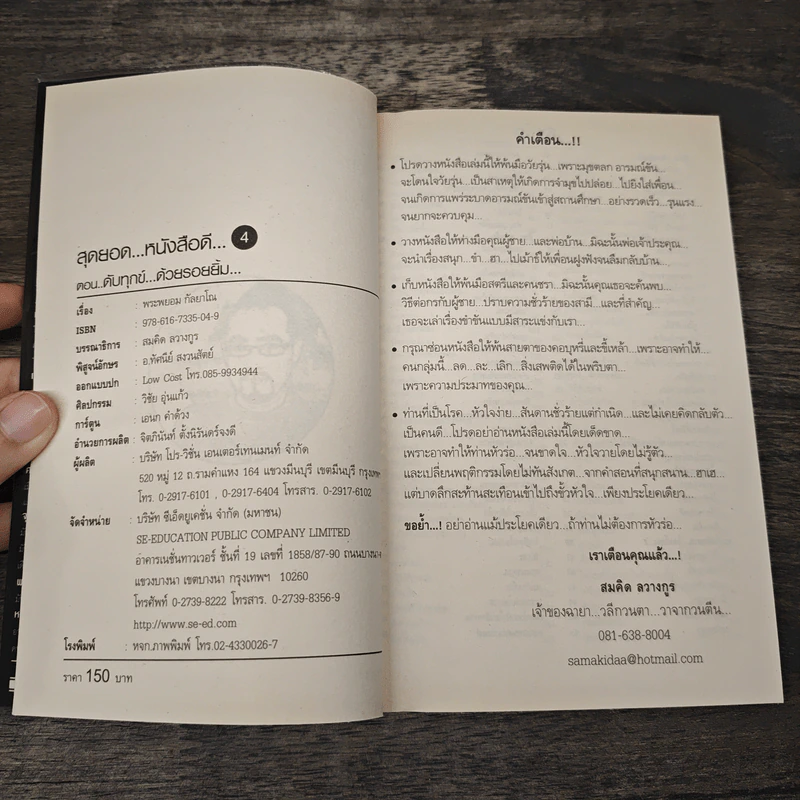 สุดยอด...หนังสือดี... 4
ตอน..ดับทุกข์...ด้วยรอยยิ้ม...
เรื่อง : พระพยอม กัลยาโณ
ISBN : 978-616-7335-04-9
บรรณาธิการ : สมคิด ลวางกูร
พิสูจน์อักษร : อ.ทัศนีย์ สงวนสัตย์
ออกแบบปก : Low Cost โทร.085-9934944
ศิลปกรรม : วิชัย อุ่นแก้ว
การ์ตูน : เอนก คำด้วง
อำนวยการผลิต : จิตภินันท์ ตั้งนิรันดร์จงดี
ผู้ผลิต : บริษัท โปร-วิชั่น เอนเตอร์เทนเมนท์ จำกัด
520 หมู่ 12 ถ.รามคำแหง 164 แขวงมีนบุรี เขตมีนบุรี กรุงเทพฯ
โทร. 0-2917-6101 , 0-2917-6404 โทรสาร. 0-2917-6102
จัดจำหน่าย : บริษัท ซีเอ็ดยูเคชั่น จำกัด (มหาชน)
SE-EDUCATION PUBLIC COMPANY LIMITED
อาคารเนชั่นทาวเวอร์ ชั้นที่ 19 เลขที่ 1858/87-90 ถนนบางนา
แขวงบางนา เขตบางนา กรุงเทพฯ 10260
โทรศัพท์ 0-2739-8222 โทรสาร. 0-2739-8356-9
http://www.se-ed.com
โรงพิมพ์ : หจก.ภาพพิมพ์ โทร.02-4330026-7
ราคา 150 บาท
คำเตือน...!!
• โปรดวางหนังสือเล่มนี้ให้พ้นมือวัยรุ่น...เพราะมุขตลก อารมณ์ขัน...
จะโดนใจวัยรุ่น...เป็นสาเหตุให้เกิดการจำมุขไปปล่อย...ไปยิงใส่เพื่อน
จนเกิดการแพร่ระบาดอารมณ์ขันเข้าสู่สถานศึกษา...อย่างรวดเร็ว...รุนแรง...
จนยากจะควบคุม...
• วางหนังสือให้ห่างมือคุณผู้ชาย...และพ่อบ้าน...มิฉะนั้นพ่อเจ้าประคุณ...
จะนำเรื่องสนุก...ขำ...ฮา...ไปเม้าธ์ให้เพื่อนฝูงฟังจนลืมกลับบ้าน...
• เก็บหนังสือให้พ้นมือสตรีและคนชรา...มิฉะนั้นคุณเธอจะค้นพบ...
วิธีต่อกรกับผู้ชาย...ปราบความชั่วร้ายของสามี...และที่สำคัญ...
เธอจะเล่าเรื่องขำขันแบบมีสาระแข่งกับเรา...
• กรุณาซ่อนหนังสือให้พ้นสายตาของคอบุหรี่และขี้เหล้า...เพราะอาจทำให้...
คนกลุ่มนี้...ลด...ละ...เลิก...สิ่งเสพติดได้ในพริบตา...
เพราะความประมาทของคุณ...
• ท่านที่เป็นโรค...หัวใจง่าย...สันดานชั่วร้ายแต่กำเนิด...และไม่เคยคิดกลับตัว...
เป็นคนดี...โปรดอย่าอ่านหนังสือเล่มนี้โดยเด็ดขาด...
เพราะอาจทำให้ท่านหัวร่อ...จนขาดใจ...หัวใจวายโดยไม่รู้ตัว...
และเปลี่ยนพฤติกรรมโดยไม่ทันสังเกต...จากคำสอนที่สนุกสนาน...ฮาเฮ...
แต่บาดลึกสะท้านสะเทือนเข้าไปถึงขั้วหัวใจ...เพียงประโยคเดียว...
ขอย้ำ...! อย่าอ่านแม้ประโยคเดียว...ถ้าท่านไม่ต้องการหัวร่อ...
เราเตือนคุณแล้ว...!
สมคิด ลวางกูร
เจ้าของฉายา...วลีกวนตา...วาจากวนตีน...
081-638-8004
samakidaa@hotmail.com